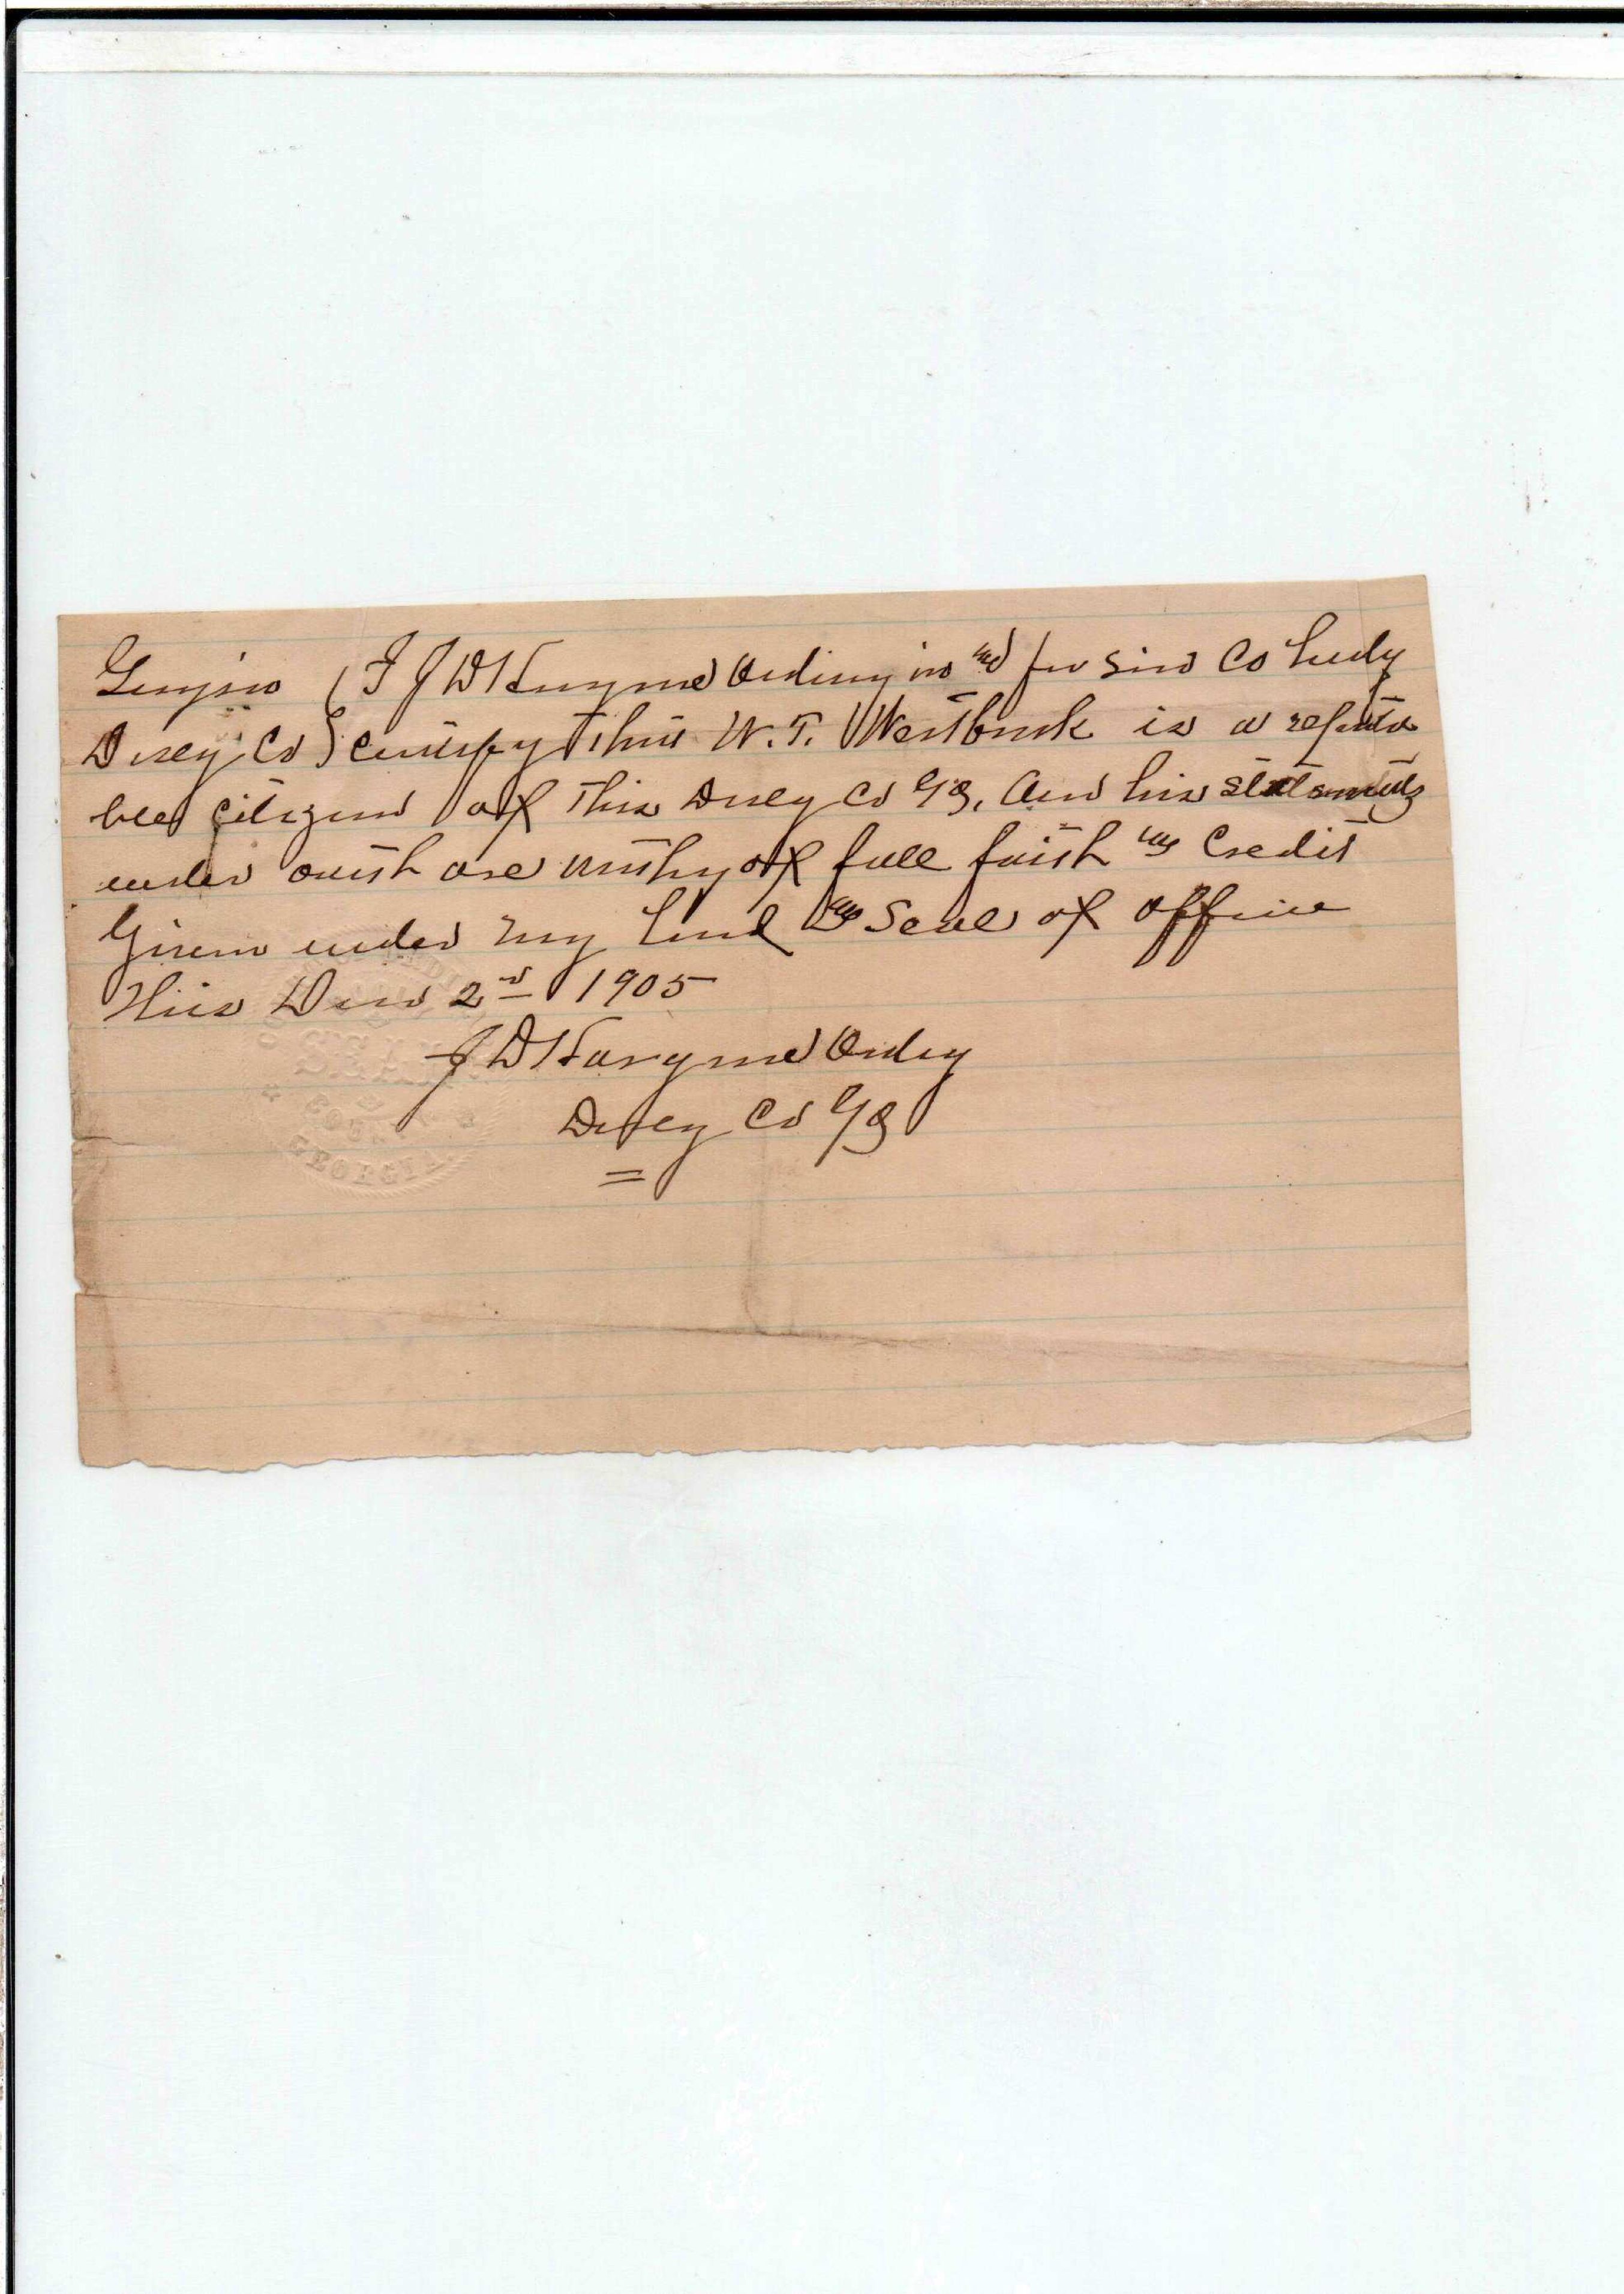 Georgia } I J D Hargrove Ordinary in and for said Co herby
Dooly Co } certify that W. T. Westbrook is a reputa
ble citizen of this Dooly Co Ga, and his statements
under oauth are worthy of full faith and Credit
Given under my hand & Seal of office
This Dec 2nd 1905
J D Hargrove Ordry
Dooly Co Ga
COUNTY
GEORGIA